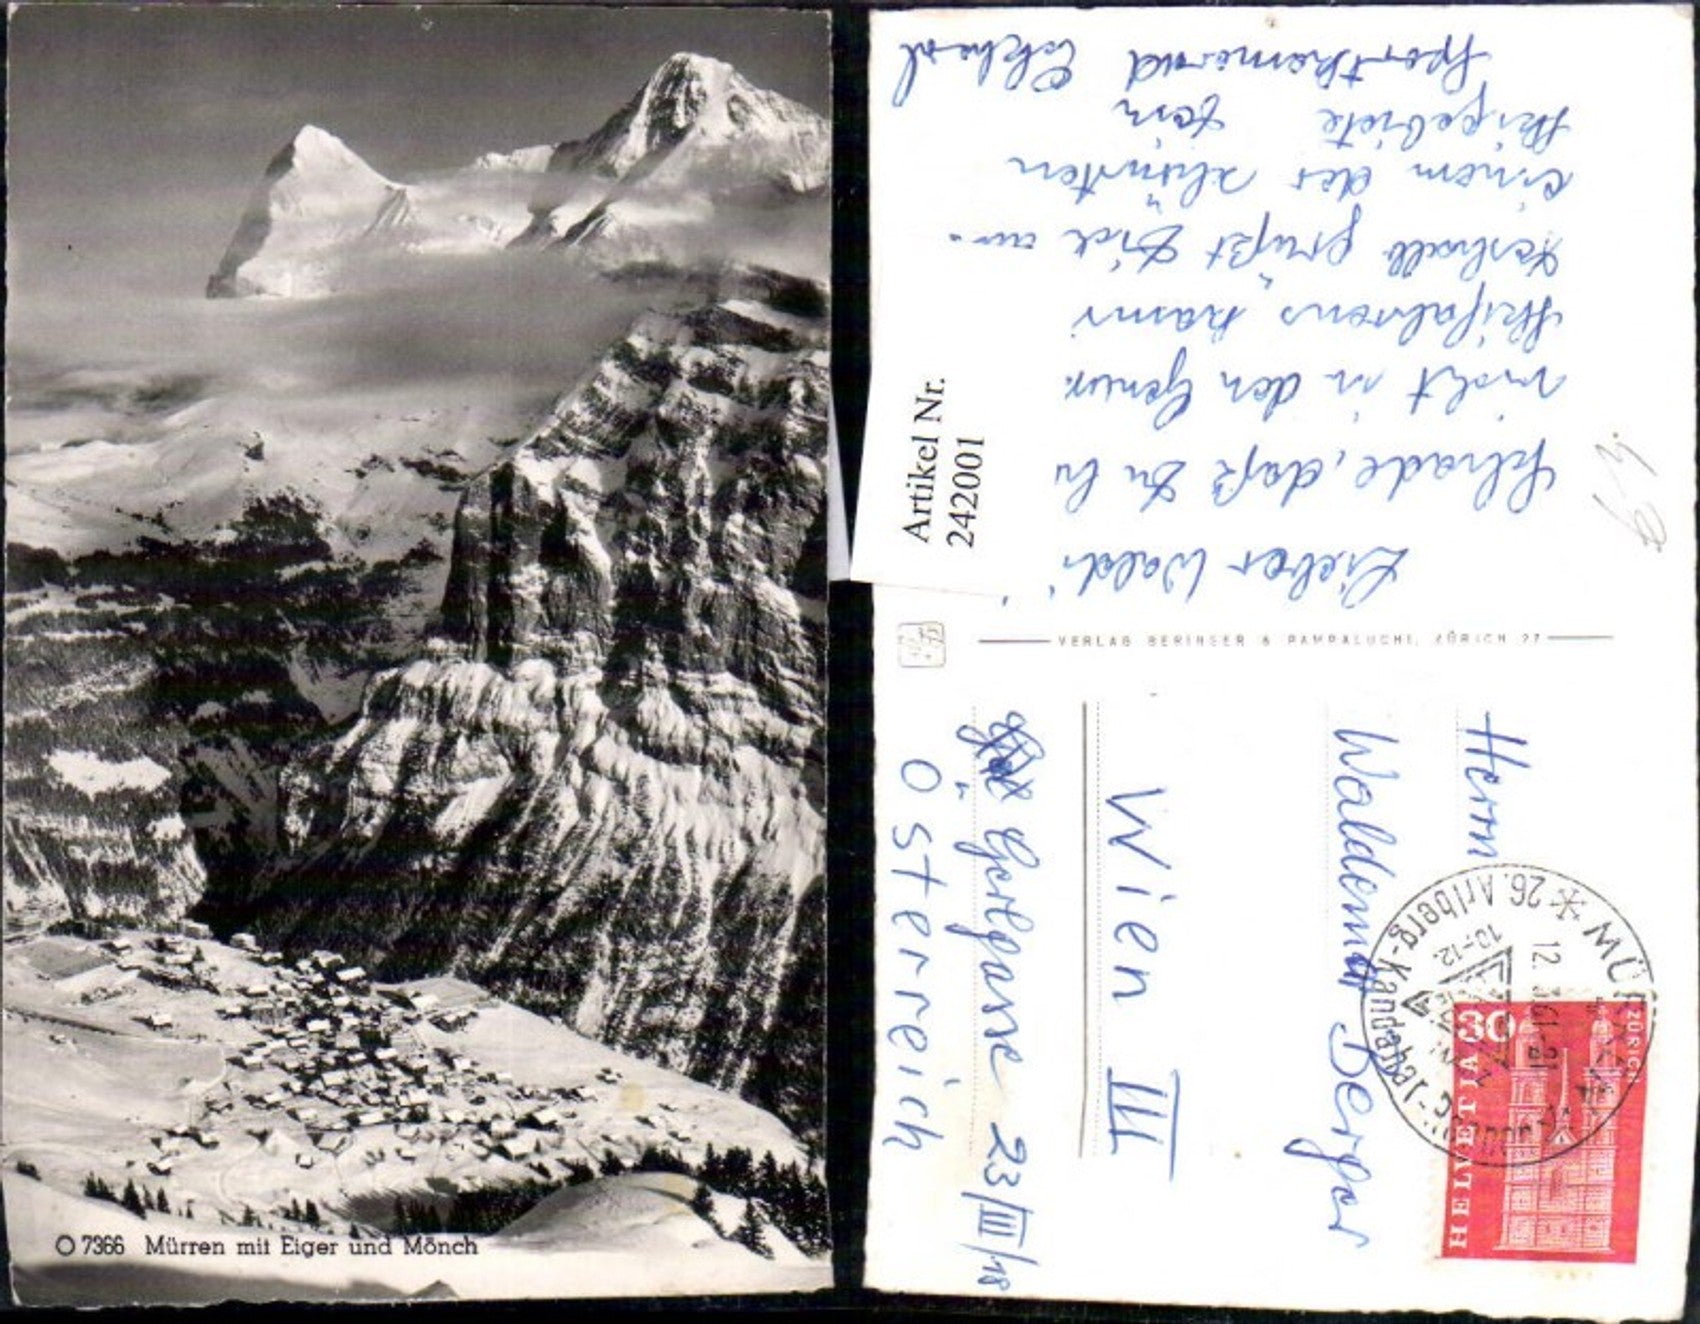 O 7366 Mürren mit Eiger und Mönch
Artikel Nr.
242001
Lieber Waldi
Schade, daß Du
nicht in den Genuß
Skifahrens kamst
Deshalb grüßt Dich aus
einem der schönsten
Skigebiete Dein
Sportkamerad
VERLAG BERINGER & PAMPALUCHI, ZÜRICH 27
Herrn
Waldemar Berger
Wien III
Görlgasse 23/III/18
Österreich
HELVETIA 30
ZÜRICH
MÜRREN
* 26. Arlberg-Kandahar-Rennen
10-12.
12. 361-21